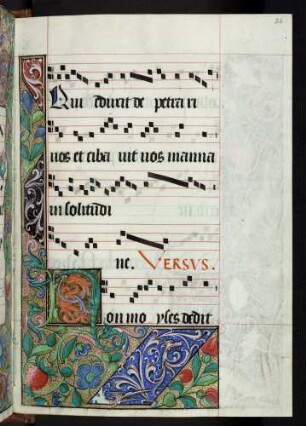 26
Qui eduxit de petra ri
uos et ciba uit uos manna
in solitudi
ne. VERSVS.
Non moyses dedit